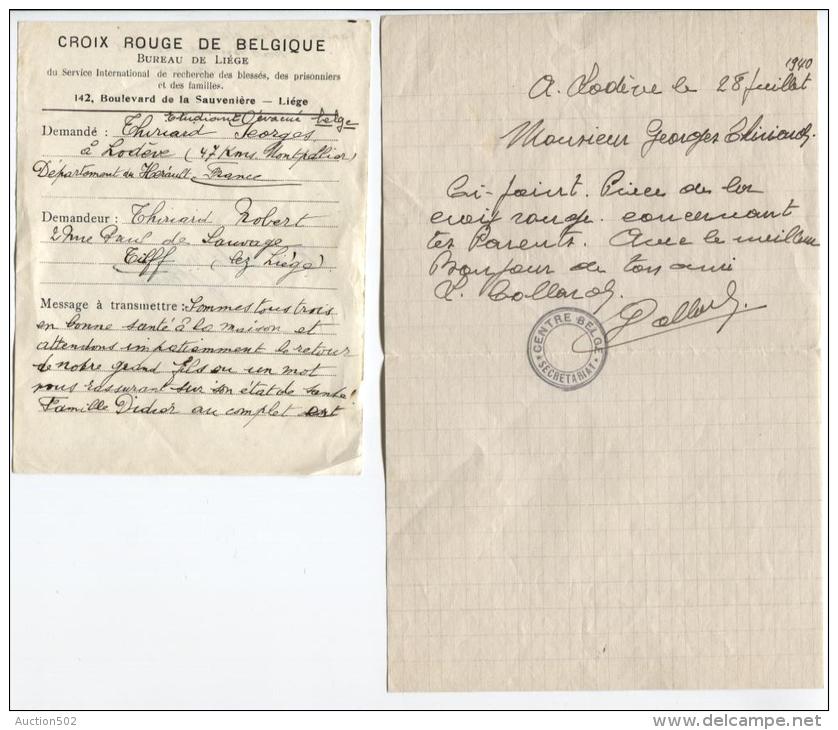 CROIX ROUGE DE BELGIQUE
BUREAU DE LIÉGE
du Service International de recherche des blessés, des prisonniers
et des familles.
142, Boulevard de la Sauvenière — Liége
Etudiant évacué belge
Demandé : Thiriard Georges
à Lodève (47 Kms. Montpellier)
Département du Hérault France
Demandeur : Thiriard Robert
2 Rue Paul de Sauvage
Tilff (lez Liége)
Message à transmettre : Sommes tous trois
en bonne santé à la maison et
attendons impatiemment le retour
de notre grand fils ou un mot
nous rassurant sur son état de santé!
Famille Didier au complet
1940
A. Lodève le 28 juillet
Monsieur Georges Thiriard.
Ci-joint. Pièce de la
croix rouge. concernant
tes Parents. Avec le meilleur
Bonjour de ton ami
L. Collard.
Collard.
CENTRE BELGE
SECRETARIAT
Auction502
www.delcampe.net